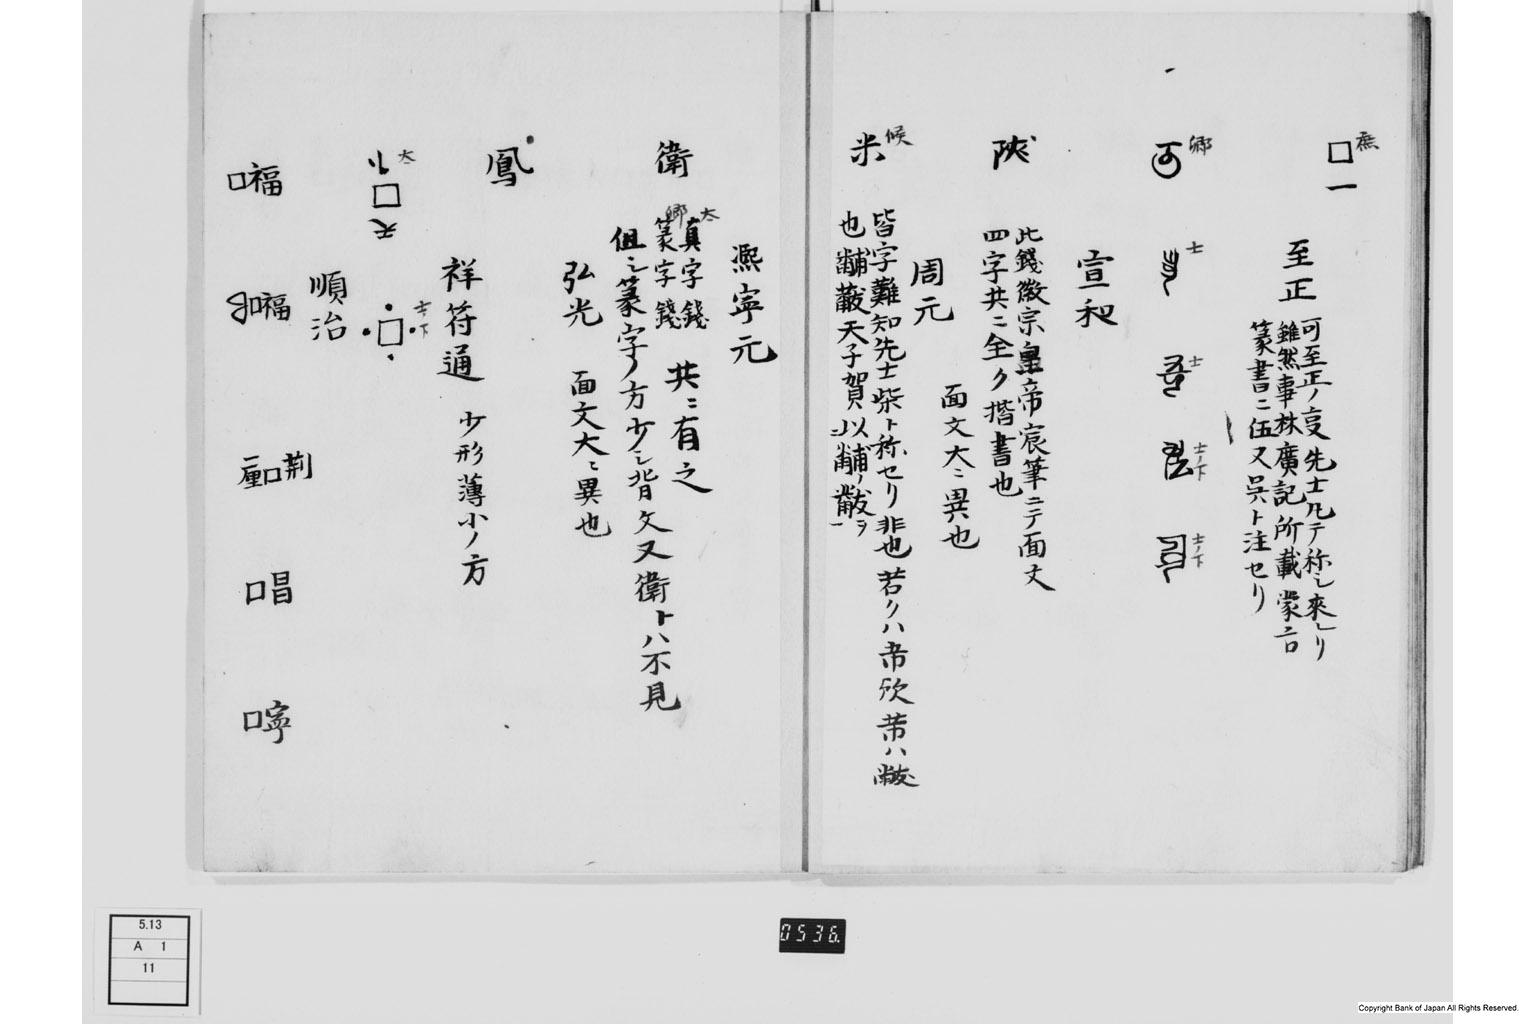 庶
□一
至正
可至正ノ㐮先士凡テ称シ來レリ
雖然事林廣記所載蒙古
篆書ニ伍又呉ト注セリ
郷
士
士
士ノ下
士ノ下
宣和
陜
此錢徽宗皇帝宸筆ニテ面文
四字共ニ全ク揩書也
周元
面文大ニ異也
候
米
皆字難知先士柴ト称セリ非也若クハ
也黼黻天子賀以黼黻ヲ
熈寧元
衛
太
真字錢
郷
篆字錢
共ニ有之
但シ篆字ノ方少シ背文又衛トハ不見
弘光
面文大ニ異也
鳳
祥符通
少形薄小ノ方
太
□
士ノ下
□
順治
□福
□福
荆
□
□昌
□寧
5.13
A 1
11
0536.
Copyright Bank of Japan All Rights Reserved.